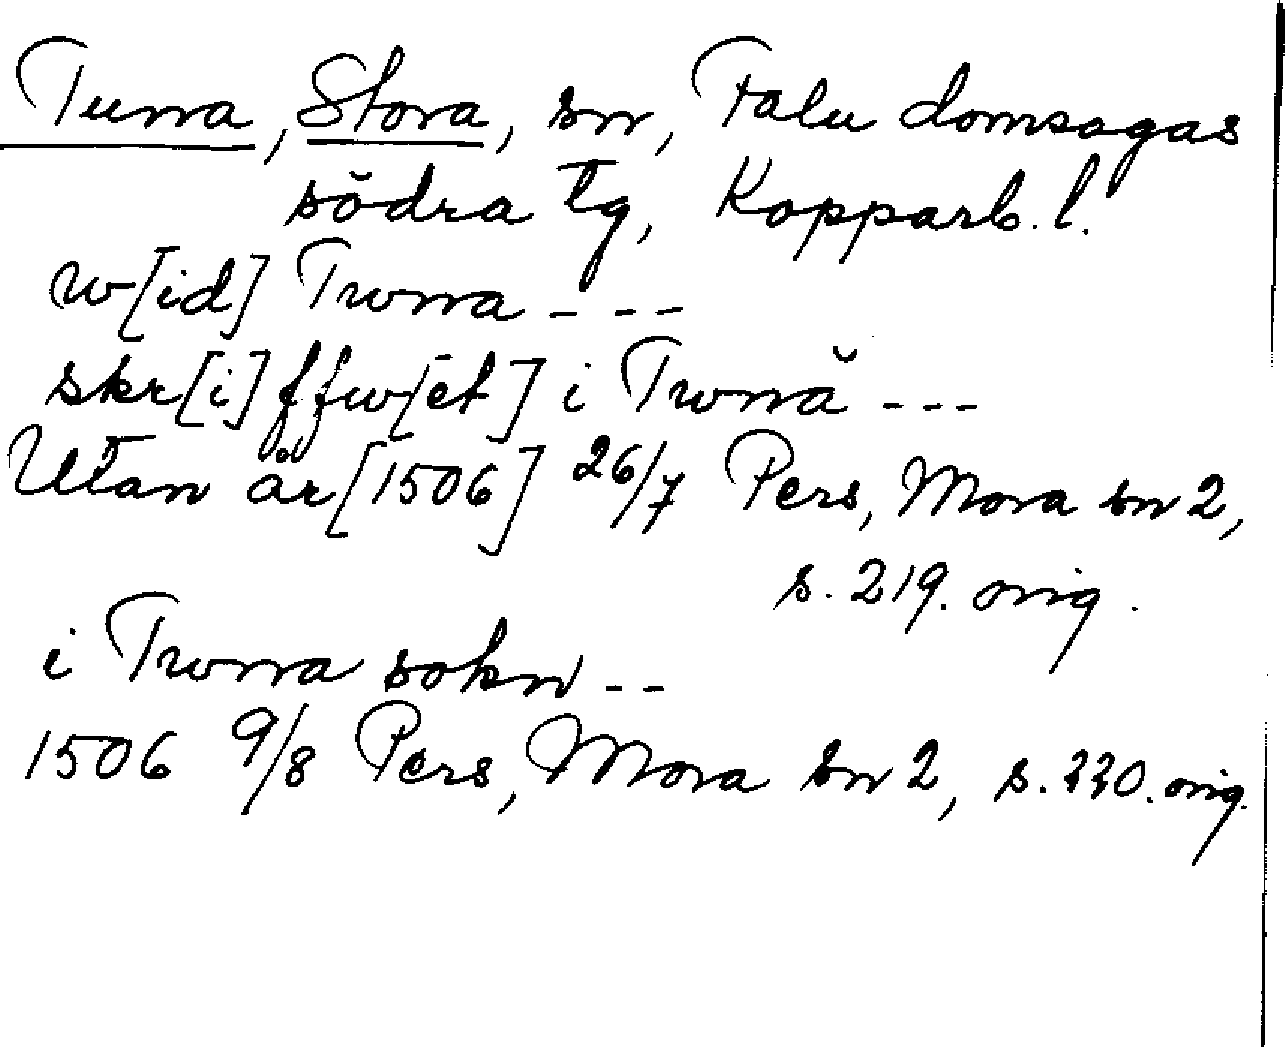 Tuna, Stora, sn, Falu domsagas
södra tg, Kopparb. l.
w[id] Twna - - -
skr[i]ffw[et] i Twnă - - -
Utan år [1506] 26/7 Pers, Mora sn 2,
s. 219. orig.
i Twna sokn - -
1506 9/8 Pers, Mora sn 2, s. 220. orig.